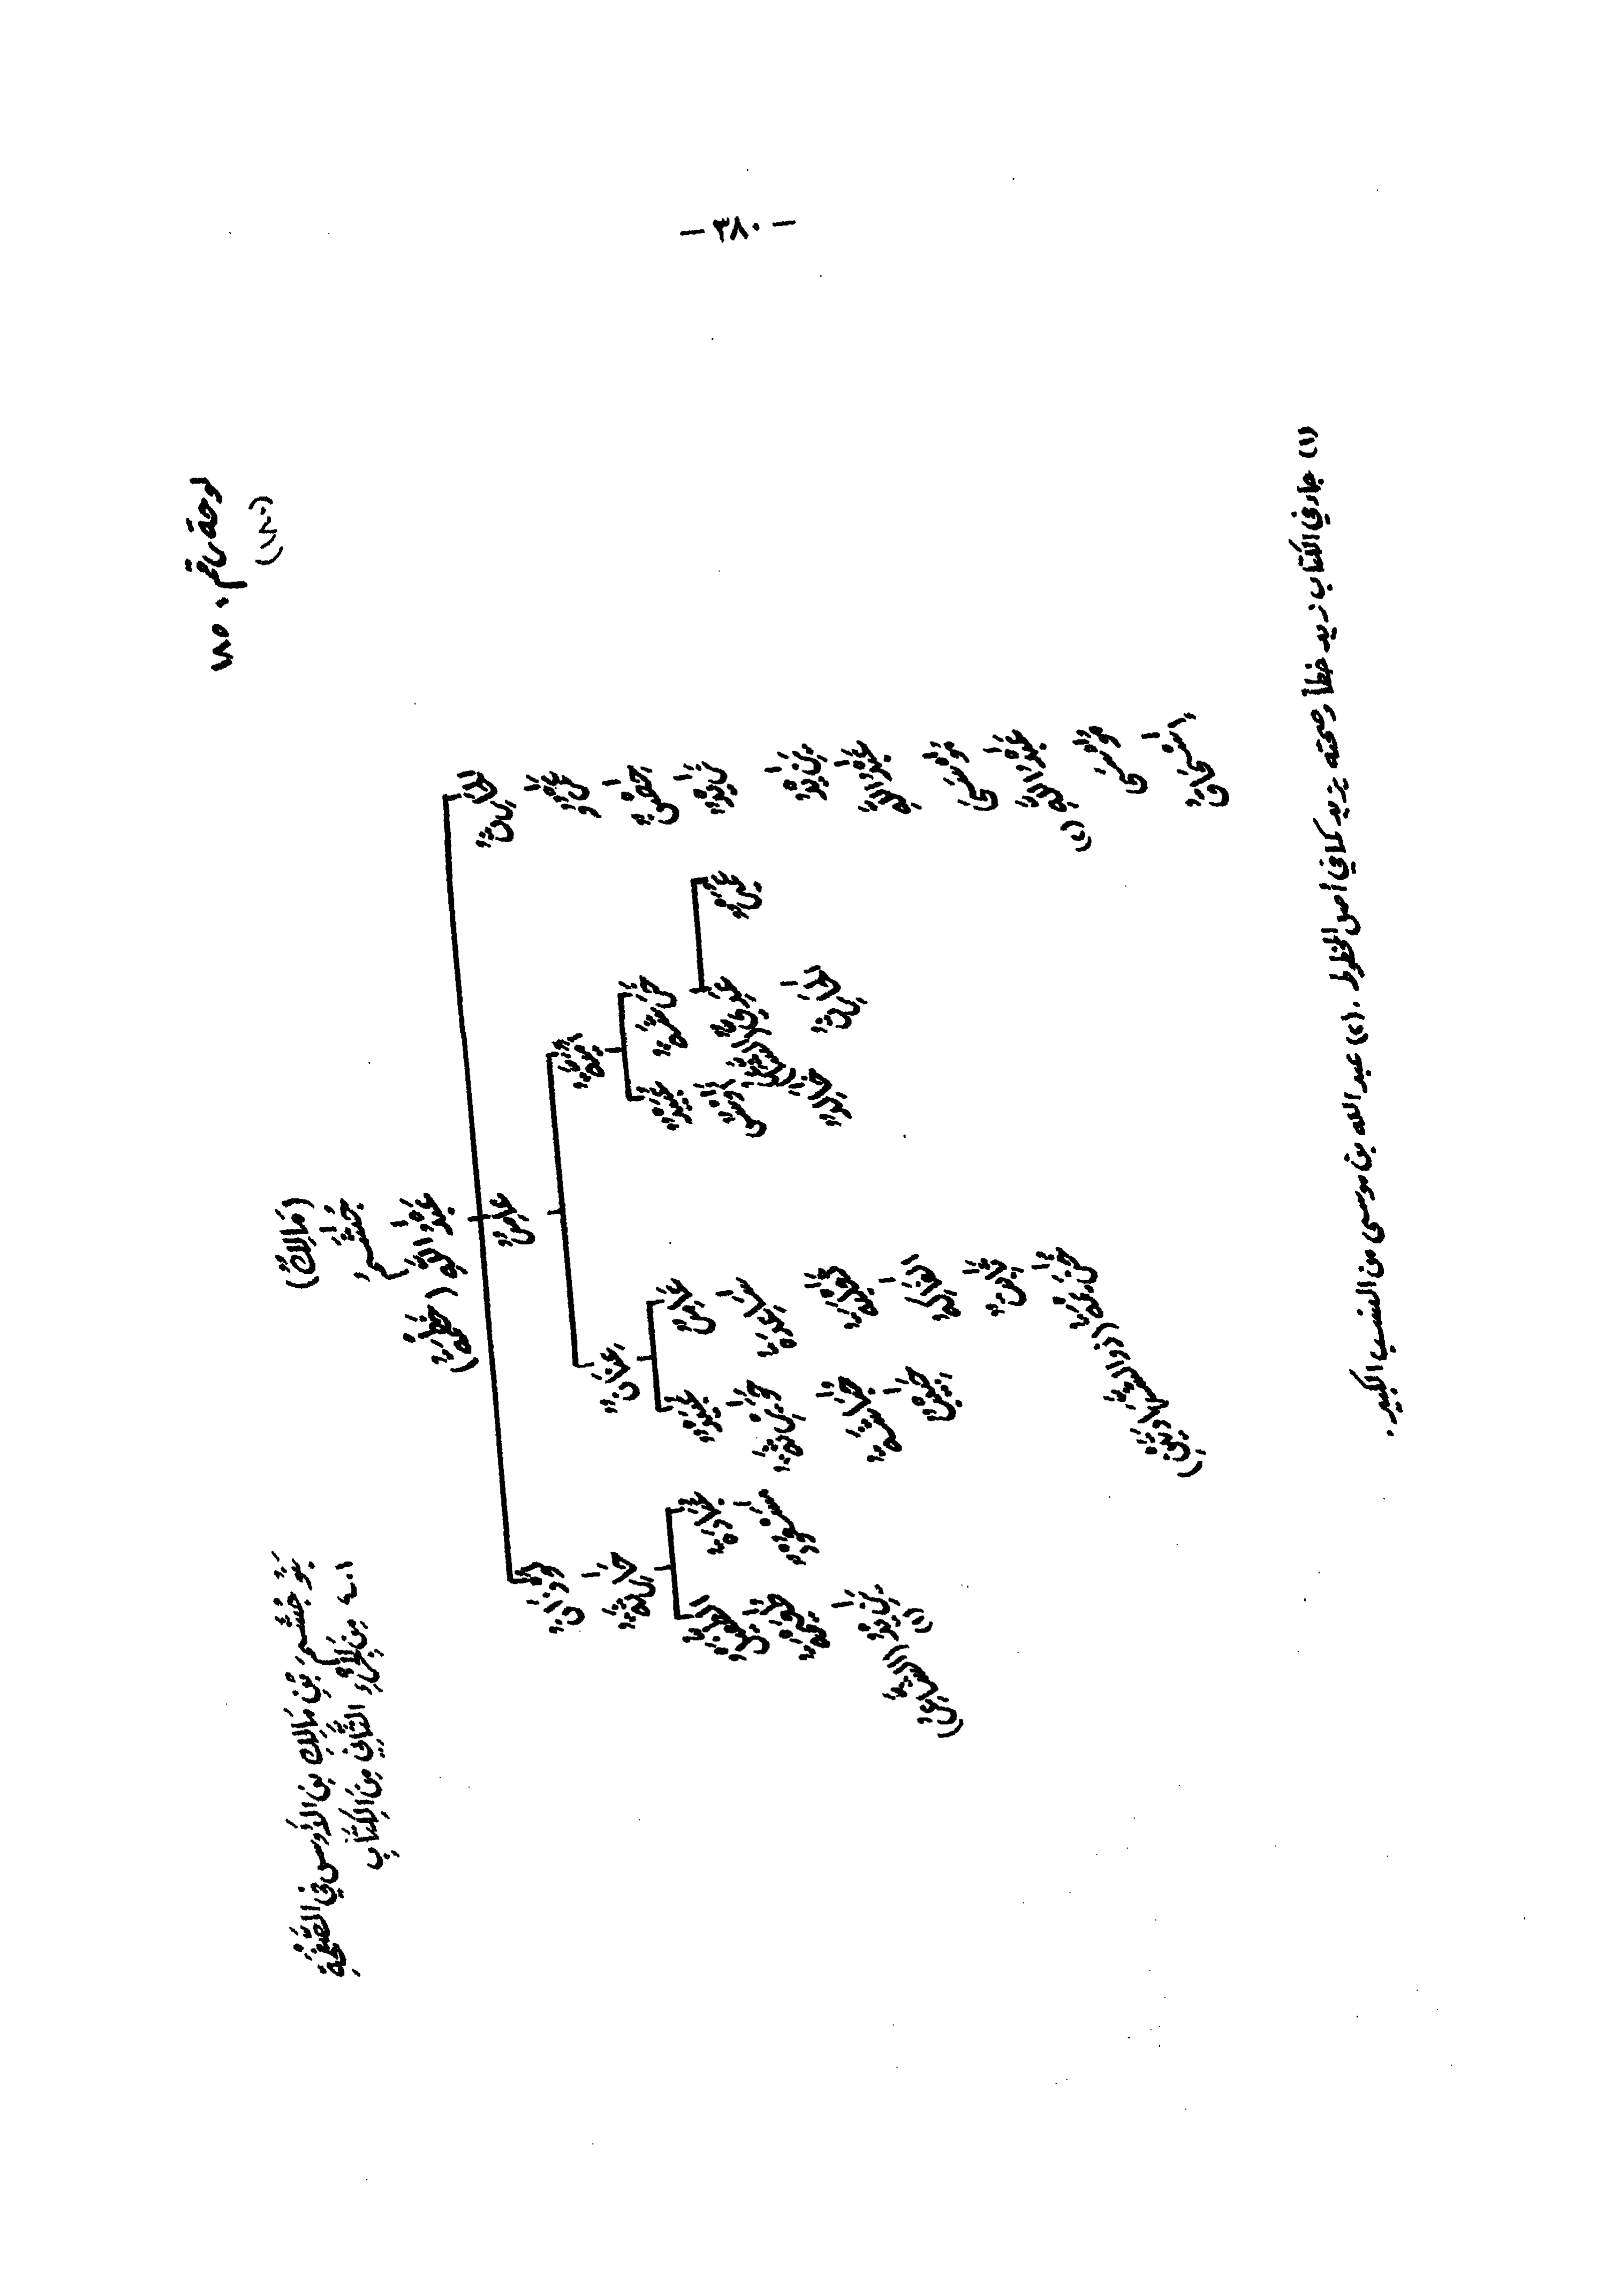 - ٣٨٠ -
لوحة رقم: ١٨٥
(١٨٠)
بَنُو جُشَمَ بْنِ مَالِكِ بنِ الأَوسِ في الصَّفْحَةِ
٤٠١ مِنَ الجُزْءِ الثَّانِي مِنَ الكِتَابِ
(مَالِكُ)
جُشَمُ
عَبْدُ اللهِ (خَطْمَةُ)
الحَارِثُ
عَامِرُ
عَمْرُو
حِصْنُ
زَيْدُ
يَزِيْدُ
عَبْدُ اللهِ
مُوْسَى
عَبْدُ اللهِ (٢)
مُوْسَى
إسْحَاقُ
أُمَيَّةُ
خَرَشَةُ
عَدِيُّ (الشَّاعِرُ)
عُمَيْرُ
الحَارِثُ
أَوْسُ
عَامِرُ
سَاعِدَةُ
ثَعْلَبَةُ
الفَاكِهُ
ثَابِتُ
خُزَيْمَةُ (ذو الشَّهَادَتَيْنِ)
خُمَاشَةُ
حَبِيْبُ
حَارِثَةُ
يَزِيْدُ (١)
(الشَّاعِرُ)
(١) جاء في الكتاب زيد خطأ وصحته يزيد كما في أصل المخطوط . (٢) عبد الله بن موسى من النسب الكبير.